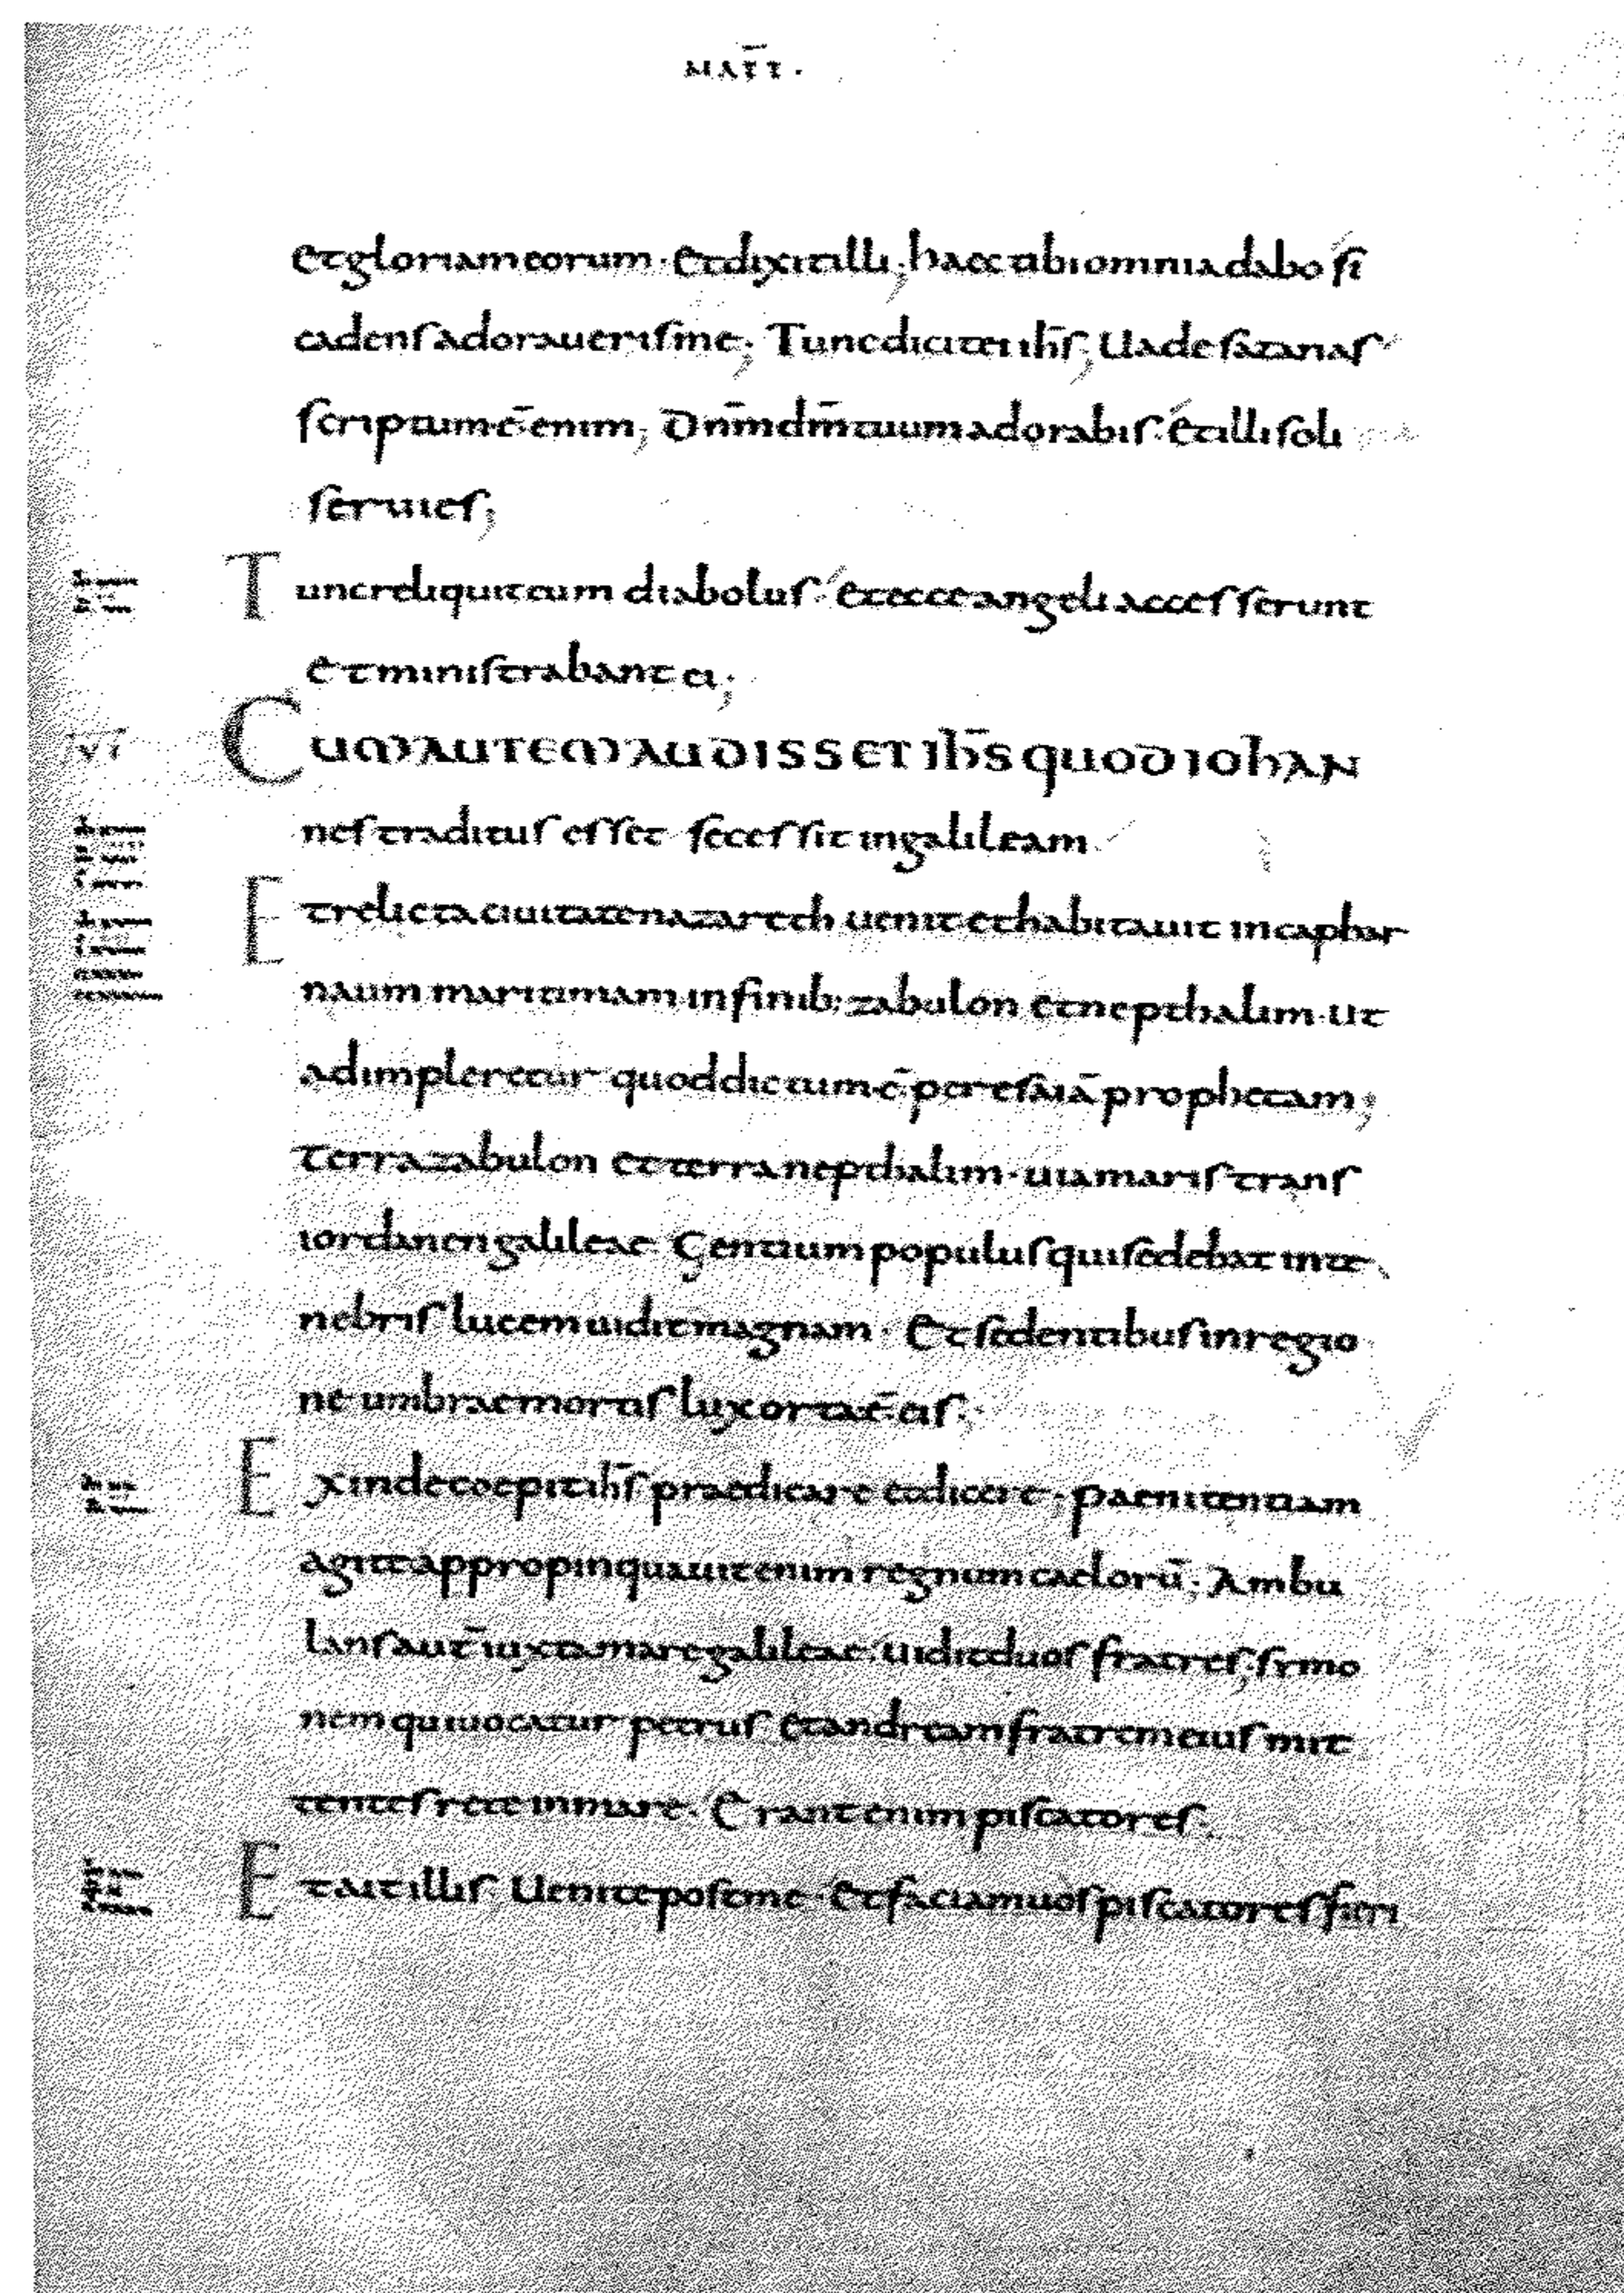 MAT̄T·
et gloriam eorum · Et dixit illi; haec tibi omnia dabo si
cadens adoraueris me; Tunc dicit ei ih̄s; Uade satanas
scriptum ē enim; Dn̄m dm̄ tuum adorabis · Et illi soli
seruies;
Tunc reliquit eum diabolus · et ecce angeli accesserunt
et ministrabant ei;
vi
CUM AUTEM AUDISSET IH̄S QUOD IOHAN
nes traditus esset secessit in galileam
Et relicta ciuitate nazareth uenit et habitauit in caphar
naum maritimam in finib; zabulon et nepthalim · ut
adimpleretur quod dictum ē per esaiā prophetam;
Terra zabulon et terra nepthalim · uia maris trans
iordanen galileae Gentium populus qui sedebat in te
nebris lucem uidit magnam · Et sedentibus in regio
ne umbrae mortis lux orta ē eis ·
Exinde coepit ih̄s praedicare et dicere · paenitentiam
agite appropinquauit enim regnum caelorū; Ambu
lans aut̄ iuxta mare galileae · uidit duos fratres; symo
nem qui uocatur petrus et andream fratrem eius mit
tentes rete in mare · Erant enim piscatores ·
Et ait illis; Uenite post me · Et faciam uos piscatores fieri